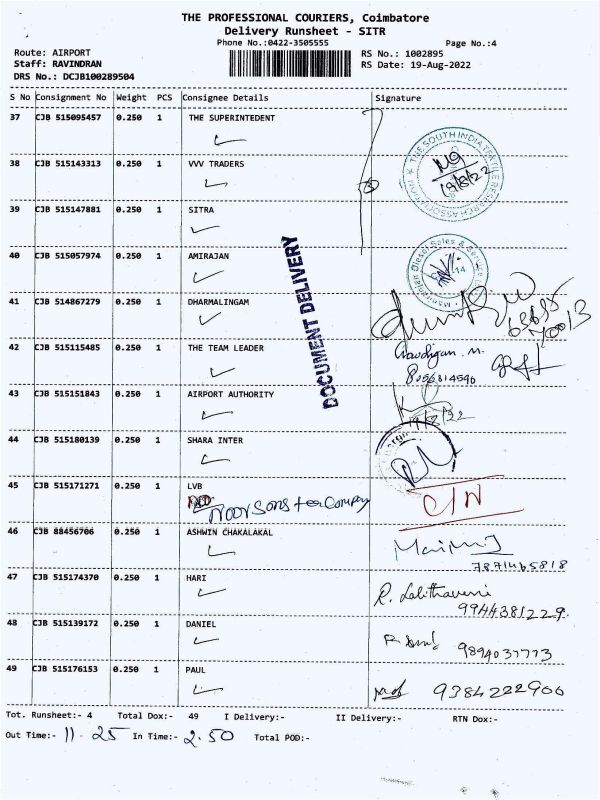 THE PROFESSIONAL COURIERS, Coimbatore
Delivery Runsheet - SITR
Phone No.:0422-3505555 Page No.:4
Route: AIRPORT RS No.: 1002895
Staff: RAVINDRAN RS Date: 19-Aug-2022
DRS No.: DCJB100289504
S No Consignment No Weight PCS Consignee Details Signature
37 CJB 515095457 0.250 1 THE SUPERINTEDENT
38 CJB 515143313 0.250 1 VVV TRADERS
THE SOUTH INDIA TEXTILE RESEARCH ASSOCIATION
19/8/22
39 CJB 515147881 0.250 1 SITRA
40 CJB 515057974 0.250 1 AMIRAJAN
Diesel Sales & Service
DOCUMENT DELIVERY
41 CJB 514867279 0.250 1 DHARMALINGAM
42 CJB 515115485 0.250 1 THE TEAM LEADER
43 CJB 515151843 0.250 1 AIRPORT AUTHORITY
19/8/22
44 CJB 515180139 0.250 1 SHARA INTER
45 CJB 515171271 0.250 1 LVB
Noor Sons tea Company
46 CJB 88456706 0.250 1 ASHWIN CHAKALAKAL
7871465818
47 CJB 515174370 0.250 1 HARI
9944381229
48 CJB 515139172 0.250 1 DANIEL
9894037773
49 CJB 515176153 0.250 1 PAUL
9384222900
Tot. Runsheet:- 4 Total Dox:- 49 I Delivery:- II Delivery:- RTN Dox:-
Out Time:- 11-25 In Time:- 2.50 Total POD:-